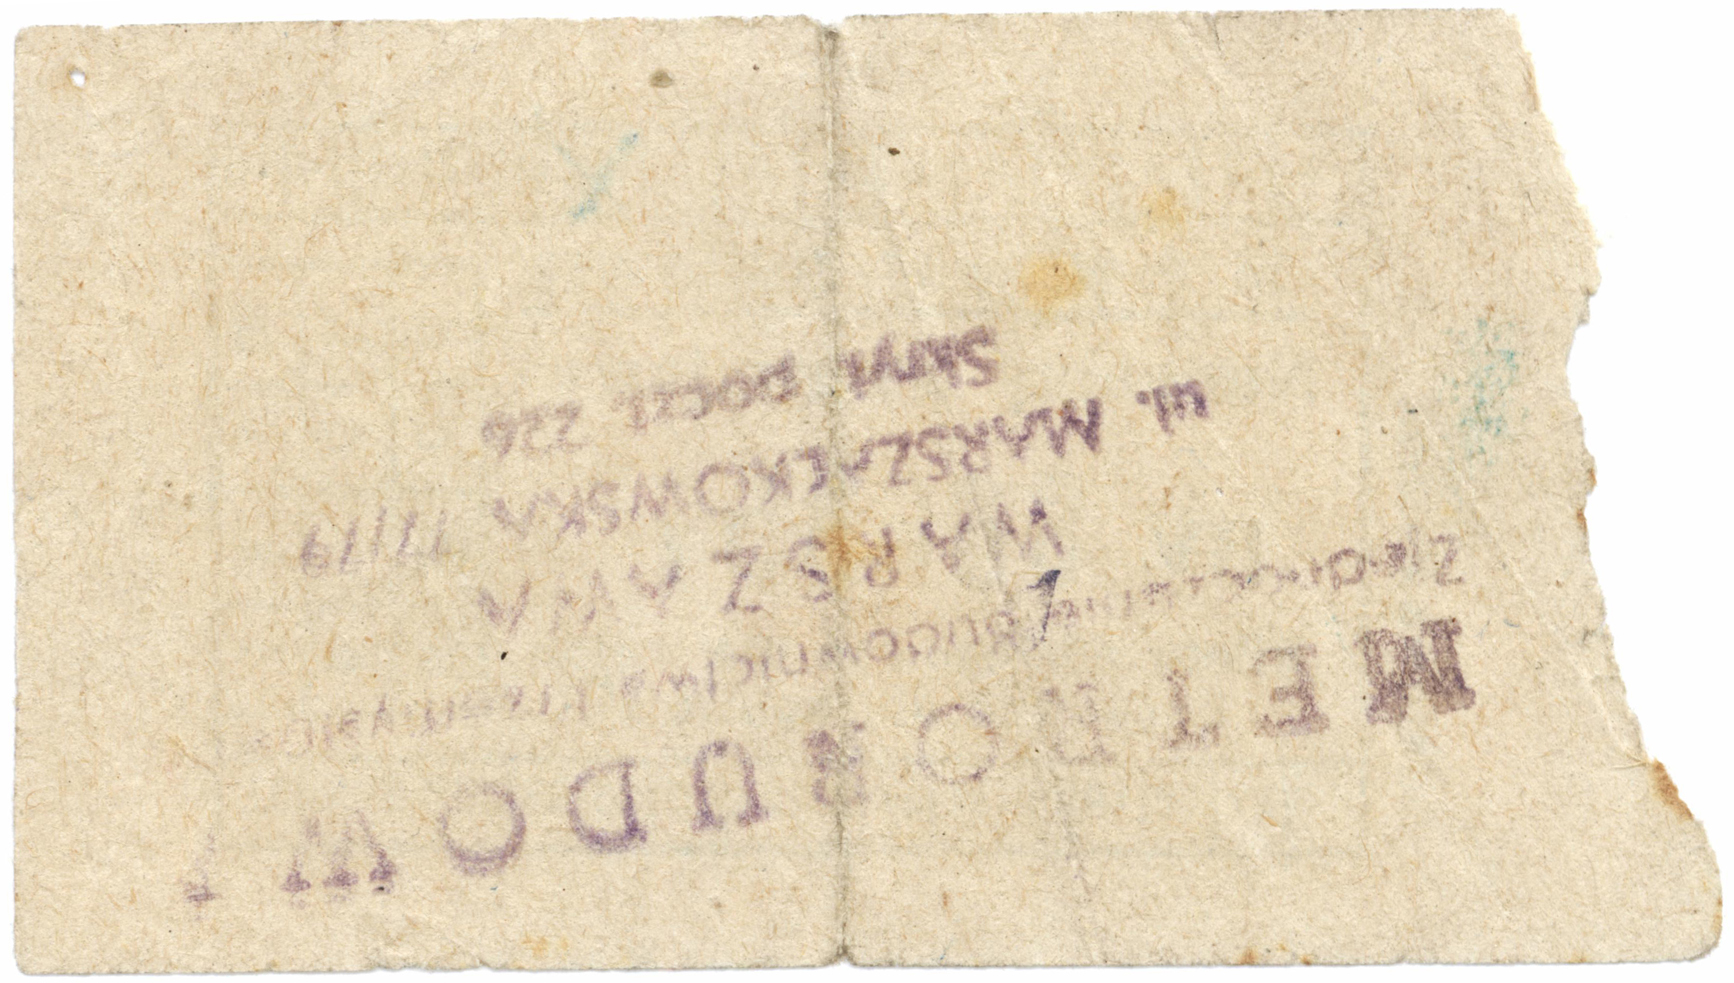 METROBUDOWA
Zjednoczenie Budownictwa
WARSZAWA
ul. MARSZAŁKOWSKA 77/79
Skryt. poczt. 226